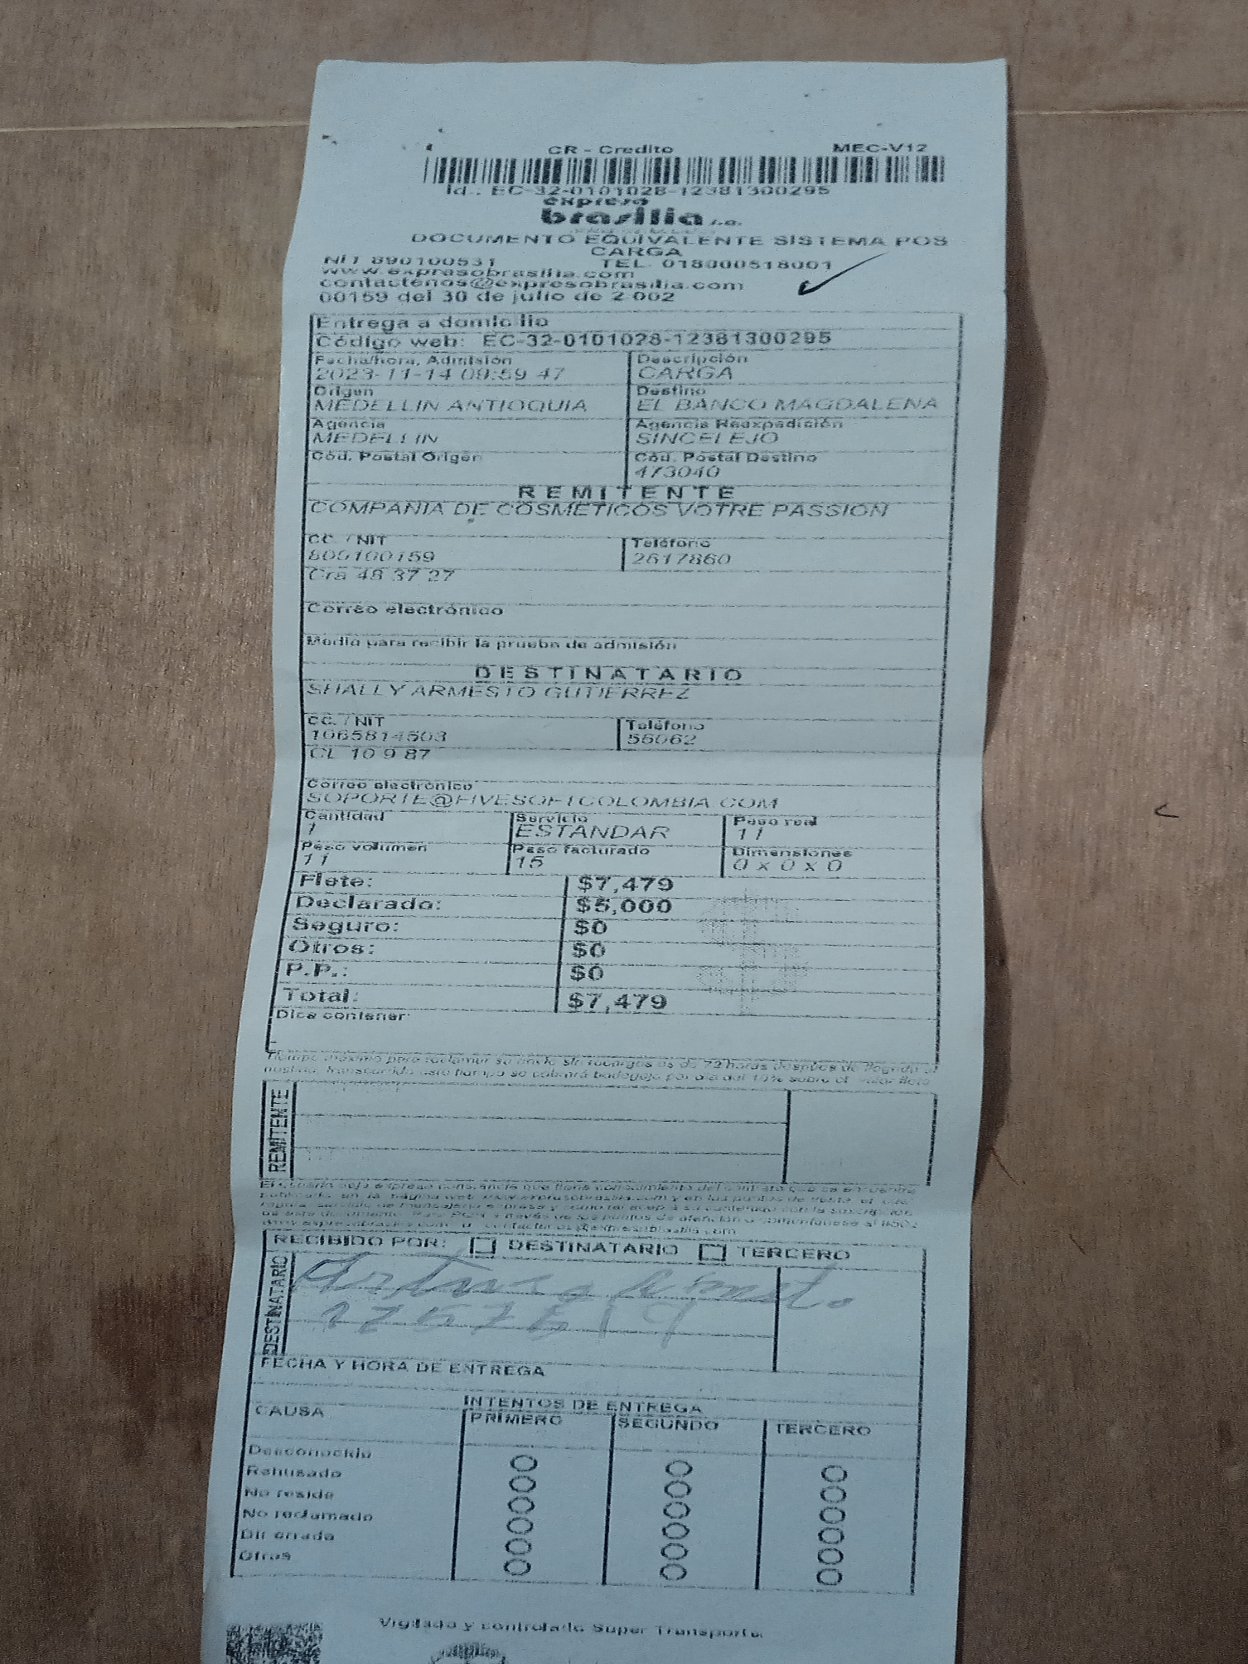 CR - Credito MEC-V12
Id.: EC-32-0101028-12381300295
expreso
brasilia s.a.
DOCUMENTO EQUIVALENTE SISTEMA POS
CARGA
NIT 890100531 TEL. 018000518001
www.expresobrasilia.com
contactenos@expresobrasilia.com
00159 del 30 de julio de 2.002
Entrega a domicilio
Código web: EC-32-0101028-12381300295
Fecha/hora, Admisión Descripción
2023-11-14 09:59 47 CARGA
Origen Destino
MEDELLIN ANTIOQUIA EL BANCO MAGDALENA
Agencia Agencia Reexpedición
MEDELLIN SINCELEJO
Cód. Postal Origen Cód. Postal Destino
473040
REMITENTE
COMPANIA DE COSMETICOS VOTRE PASSION
CC. / NIT Teléfono
2617860
Cra 48 37 27
Correo electrónico
Medio para recibir la prueba de admisión
DESTINATARIO
SHALLY ARMESTO GUTIERREZ
CC. / NIT Teléfono
1065814503 55062
CL 10 9 87
Correo electrónico
SOPORTE@FIVESOFTCOLOMBIA.COM
Cantidad Servicio Peso real
1 ESTANDAR 11
Peso volumen Peso facturado Dimensiones
11 15 0 x 0 x 0
Flete: $7,479
Declarado: $5,000
Seguro: $0
Otros: $0
P.P.: $0
Total: $7,479
Dice contener:
Tiempo máximo para reclamar su envío sin recargos es de 72 horas después de llegado al
REMITENTE
RECIBIDO POR: DESTINATARIO TERCERO
DESTINATARIO
Arturo
FECHA Y HORA DE ENTREGA
INTENTOS DE ENTREGA
CAUSA PRIMERO SEGUNDO TERCERO
Desconocido
Rehusado
No reside
No reclamado
Dir errada
Otros
Vigilado y controlado Super Transporte.